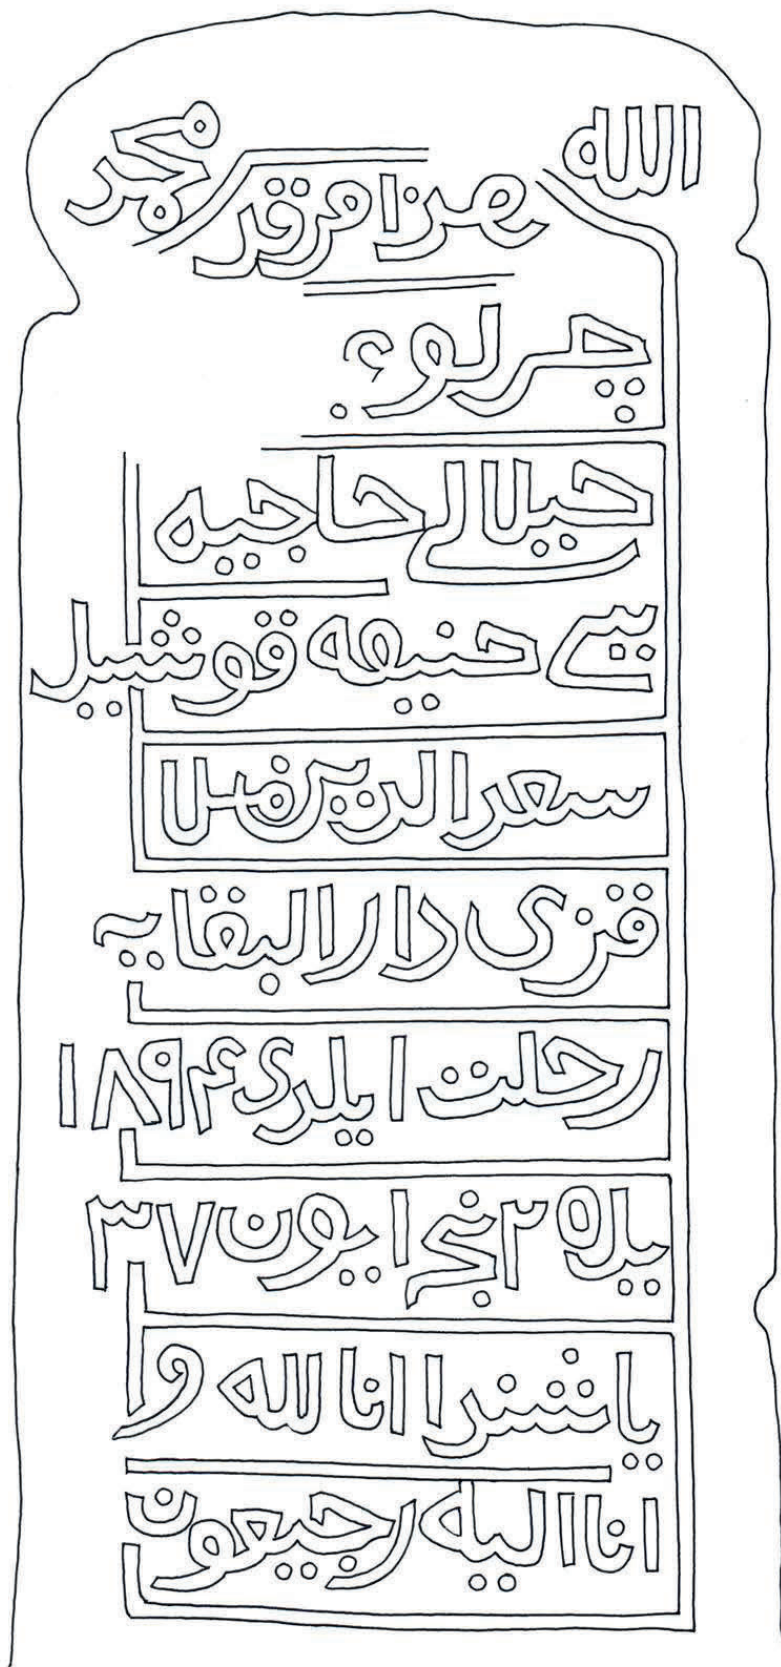 الله محمد
هذا مرقد
حيلالے حاجيه
بيے حنيفه قوشيل
سعدالدين
قزى دارالبقايه
رحلت ايلدى ١٨٩۴
يل ٢٥ نجے ايون ٣٧
ياشندا انا لله و
انا اليه رجيعون